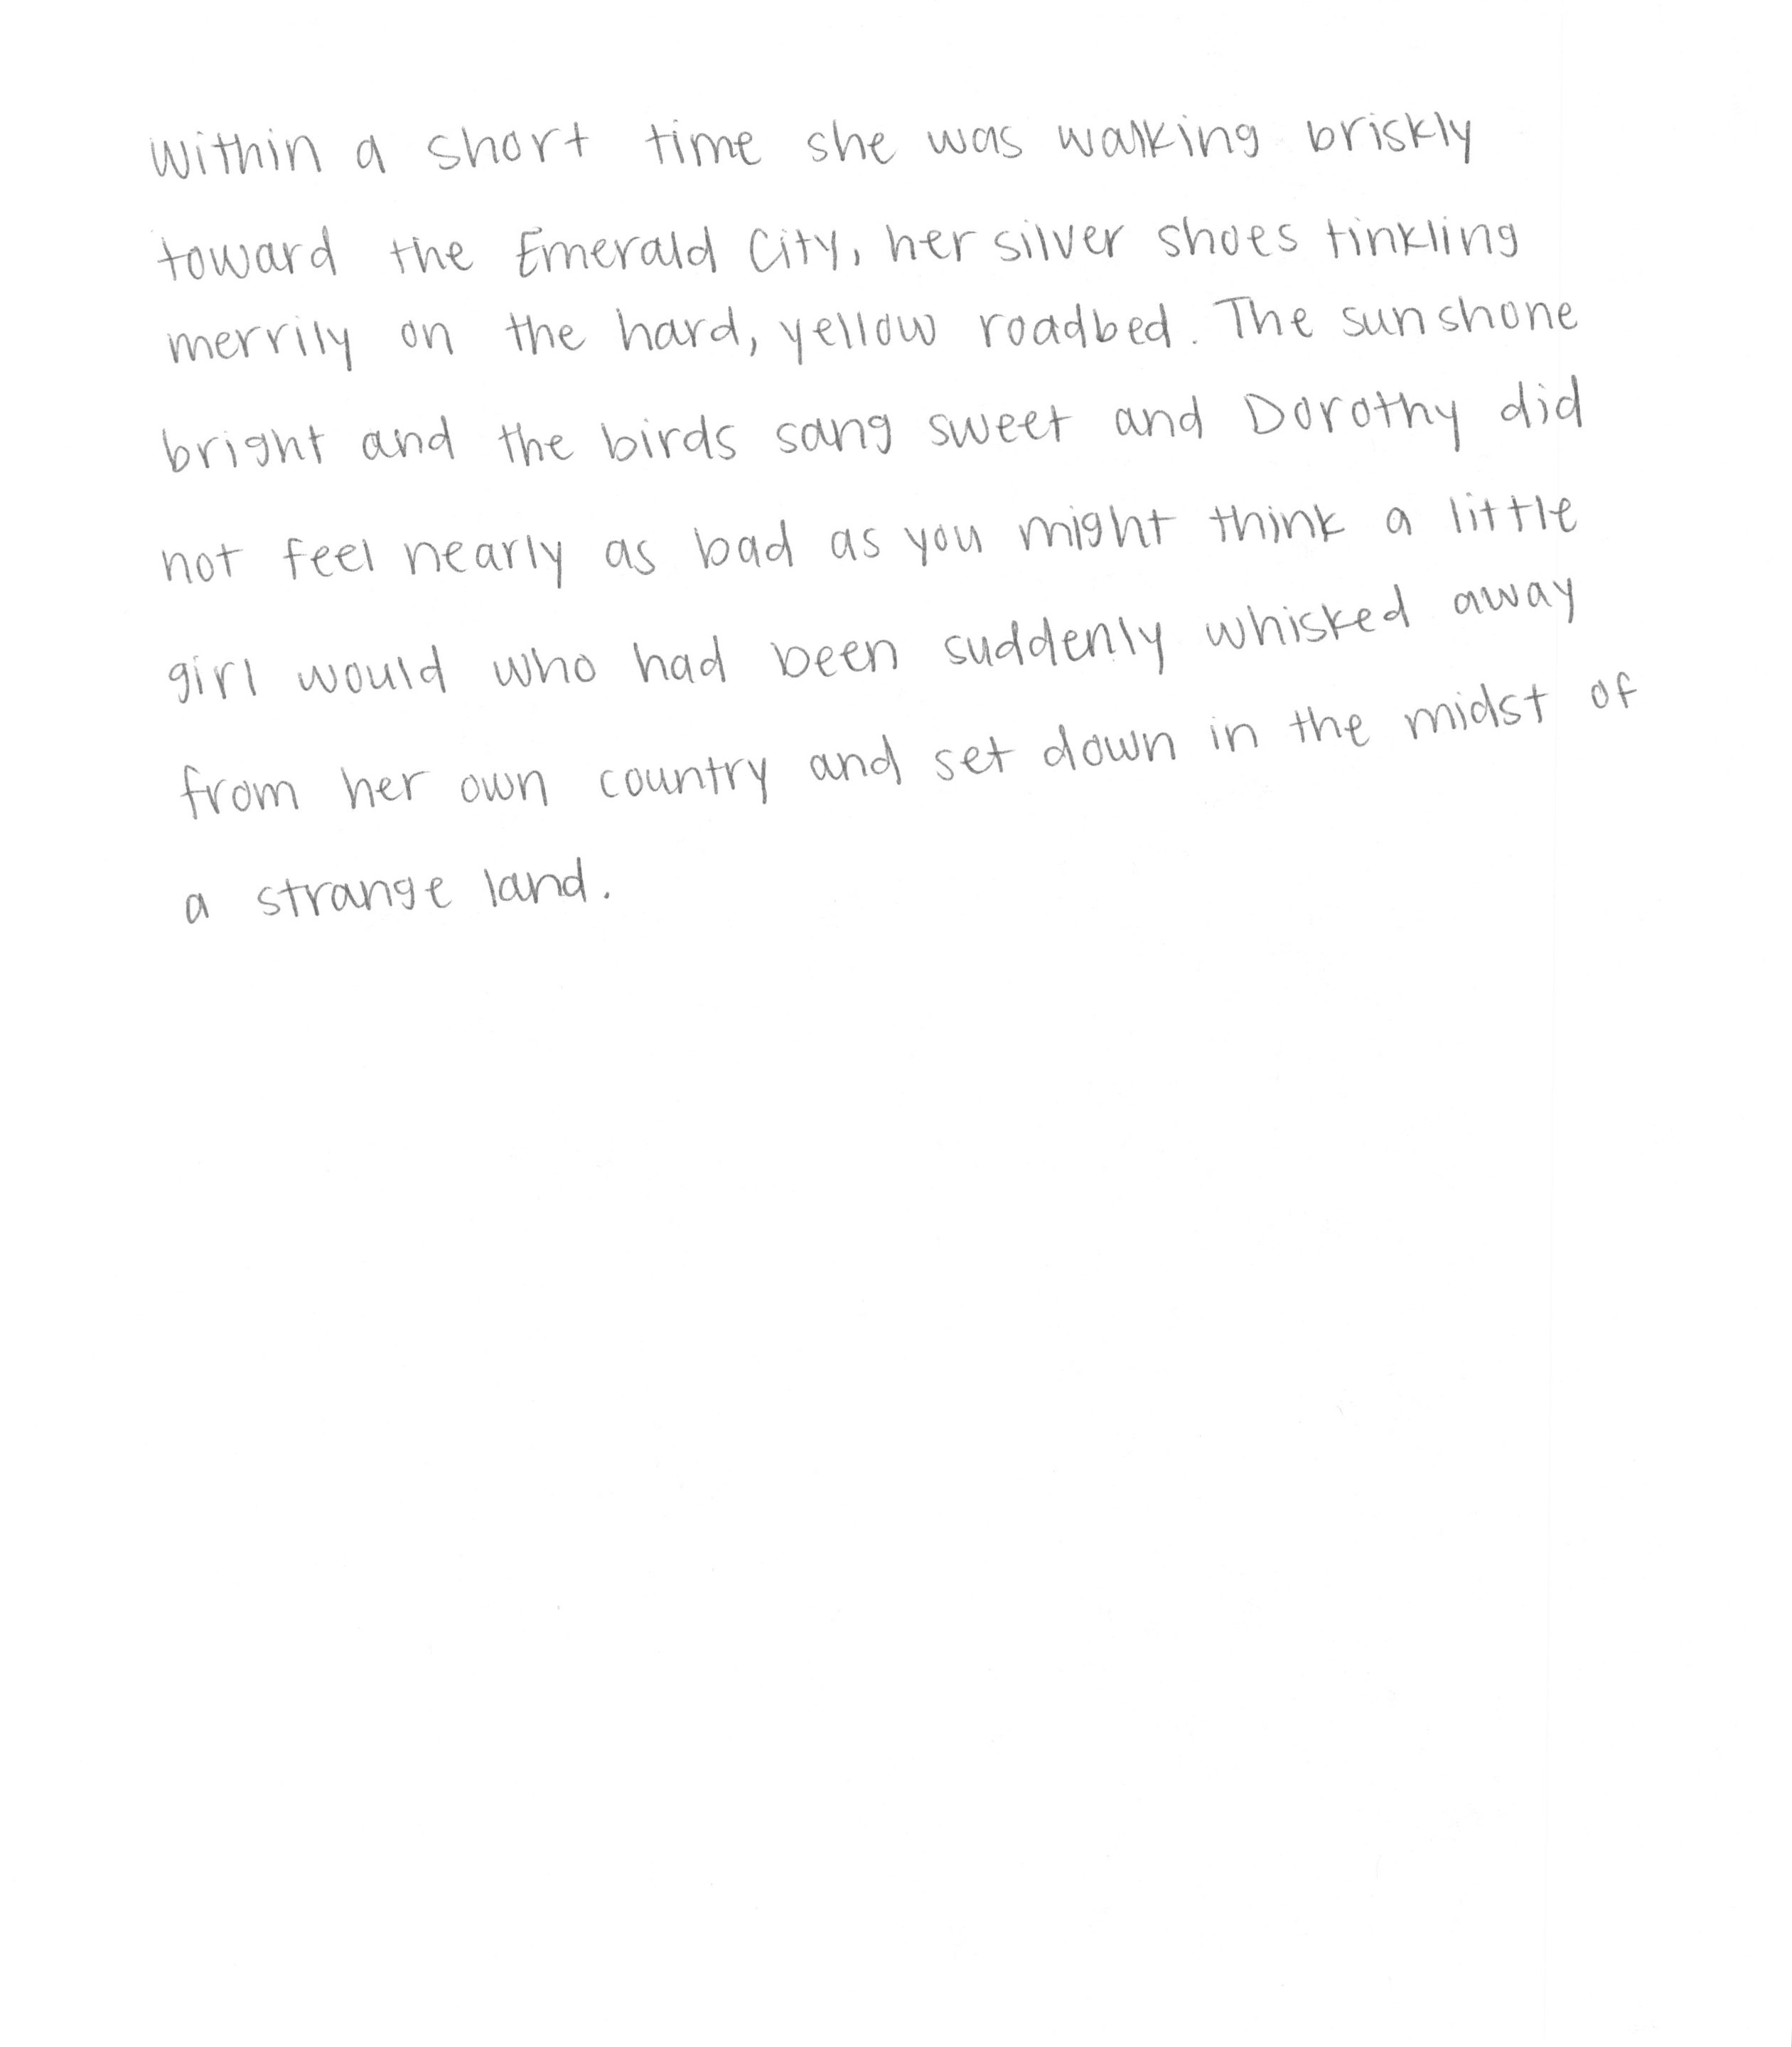 Within a short time she was walking briskly
toward the Emerald City, her silver shoes tinkling
merrily on the hard, yellow roadbed. The sun shone
bright and the birds sang sweet and Dorothy did
not feel nearly as bad as you might think a little
girl would who had been suddenly whisked away
from her own country and set down in the midst of
a strange land.